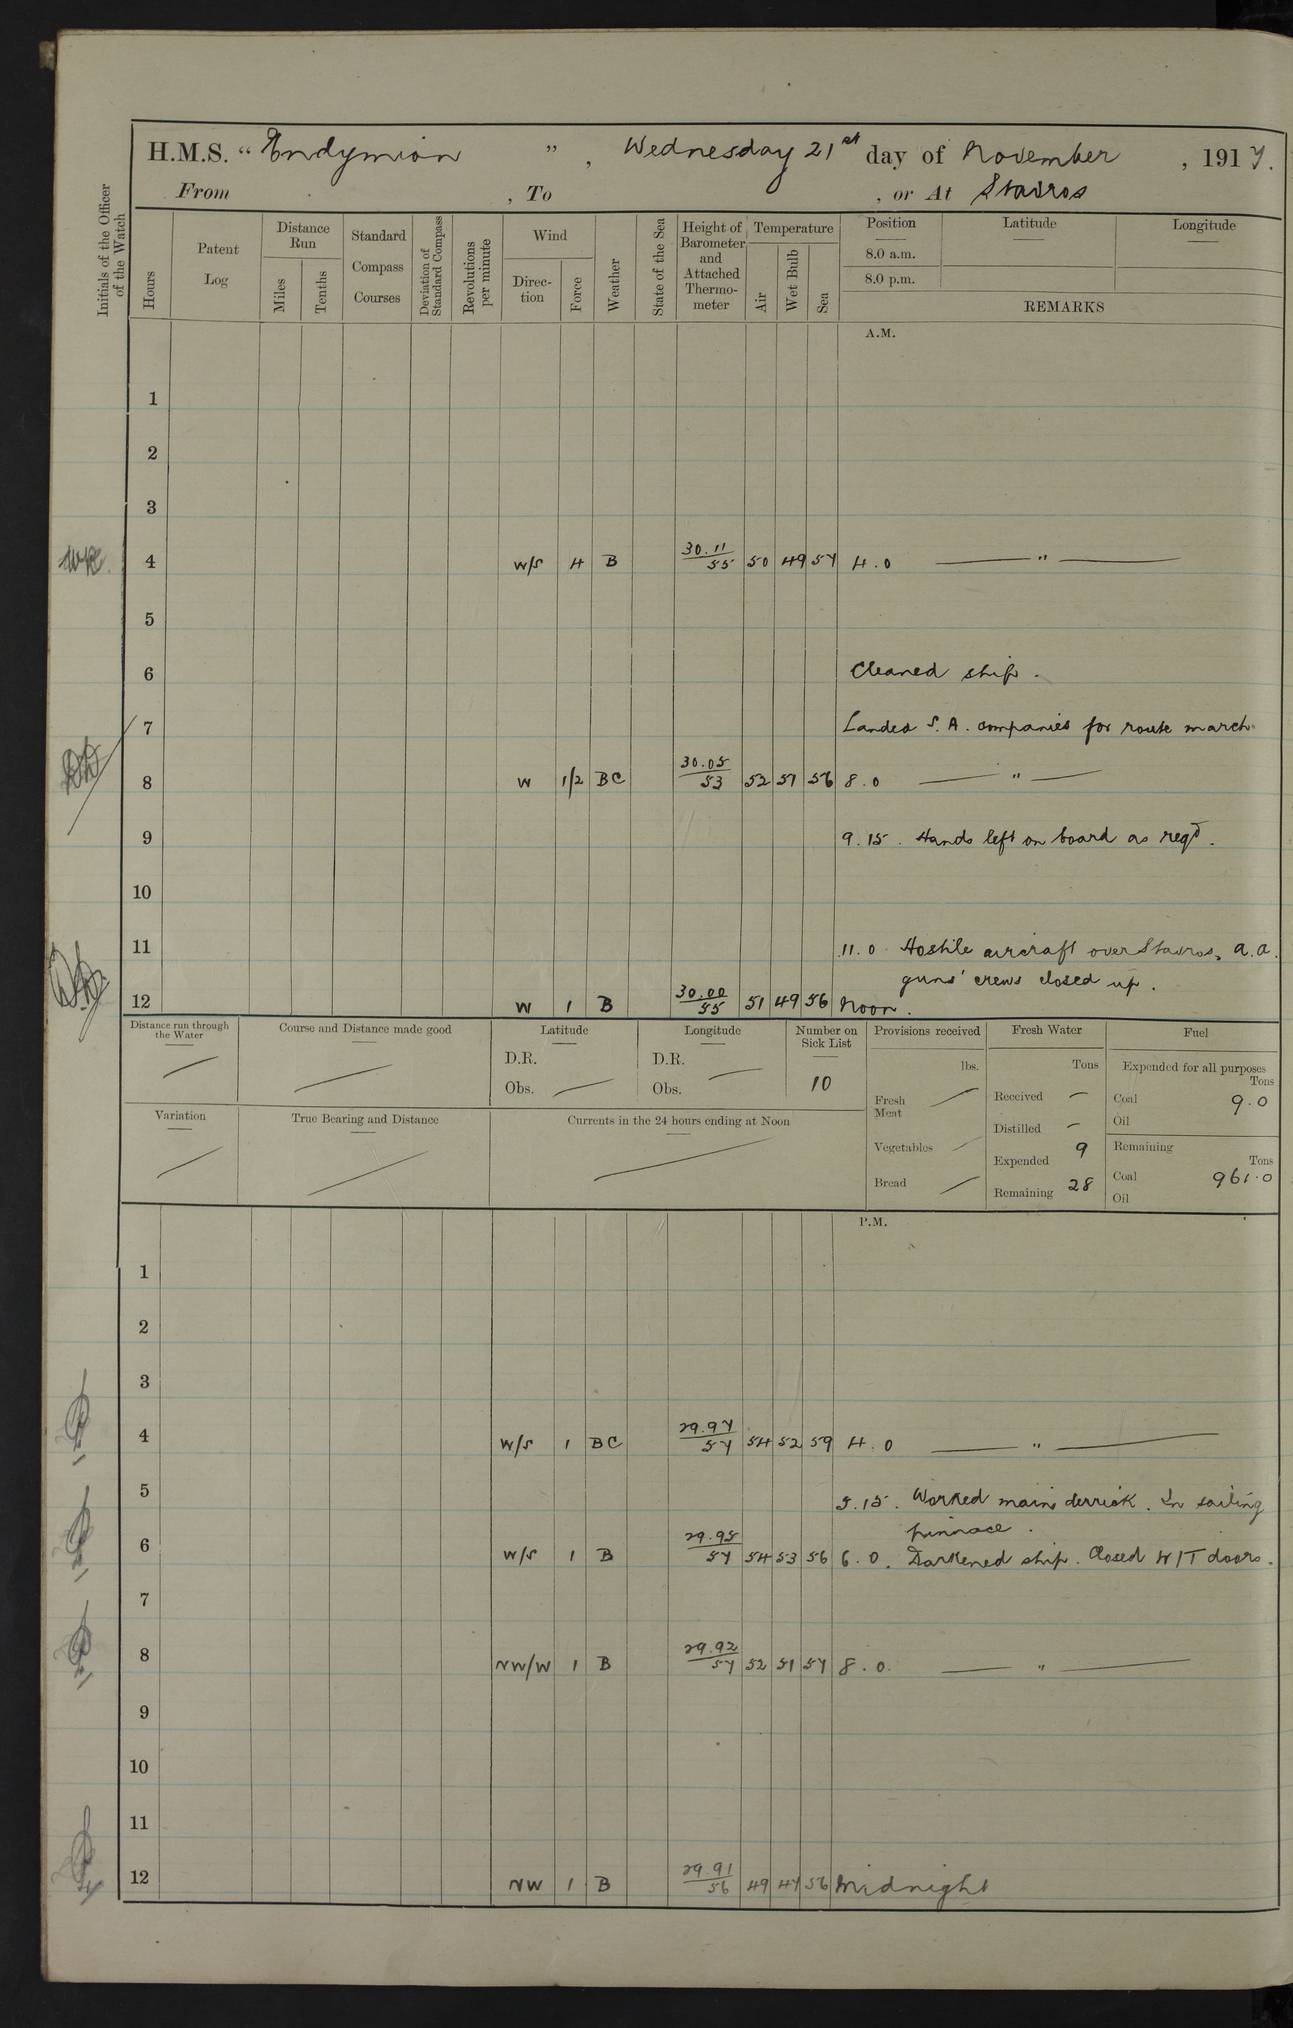 H.M.S. “ Endymion ” , Wednesday 21st day of November , 1917.
From , To , or At Stavros
Initials of the Officer of the Watch
Hours
Patent Log
Distance Run
Miles
Tenths
Standard Compass Courses
Deviation of Standard Compass
Revolutions per minute
Wind
Direc-tion
Force
Weather
State of the Sea
Height of Barometer and Attached Thermo-meter
Temperature
Air
Wet Bulb
Sea
Position
8.0 a.m.
8.0 p.m.
Latitude
Longitude
REMARKS
A.M.
1
2
3
4 W/S 4 B 30.11/55 50 49 57 4.0 — " —
5
6 Cleaned ship.
7 Landed S.A. companies for route march.
8 W 1/2 BC 30.05/53 52 51 56 8.0 — " —
9 9.15. Hands left on board as reqd.
10
11 11.0 Hostile aircraft over Stavros, a.a.
guns' crews closed up.
12 W 1 B 30.00/55 51 49 56 Noon.
Distance run through the Water
Course and Distance made good
Latitude
D.R.
Obs.
Longitude
D.R.
Obs.
Number on Sick List
10
Provisions received
lbs.
Fresh Meat
Vegetables
Bread
Fresh Water
Tons
Received –
Distilled –
Expended 9
Remaining 28
Fuel
Expended for all purposes
Tons
Coal 9.0
Oil
Remaining
Tons
Coal 961.0
Oil
Variation
True Bearing and Distance
Currents in the 24 hours ending at Noon
P.M.
1
2
3
4 W/S 1 BC 29.97/57 54 52 59 4.0 — " —
5 5.15. Worked main derrick. In sailing
pinnace.
6 W/S 1 B 29.95/57 54 53 56 6.0. Darkened ship. Closed W/T doors.
7
8 NW/W 1 B 29.92/57 52 51 57 8.0. — " —
9
10
11
12 NW 1 B 29.91/56 49 47 56 Midnight